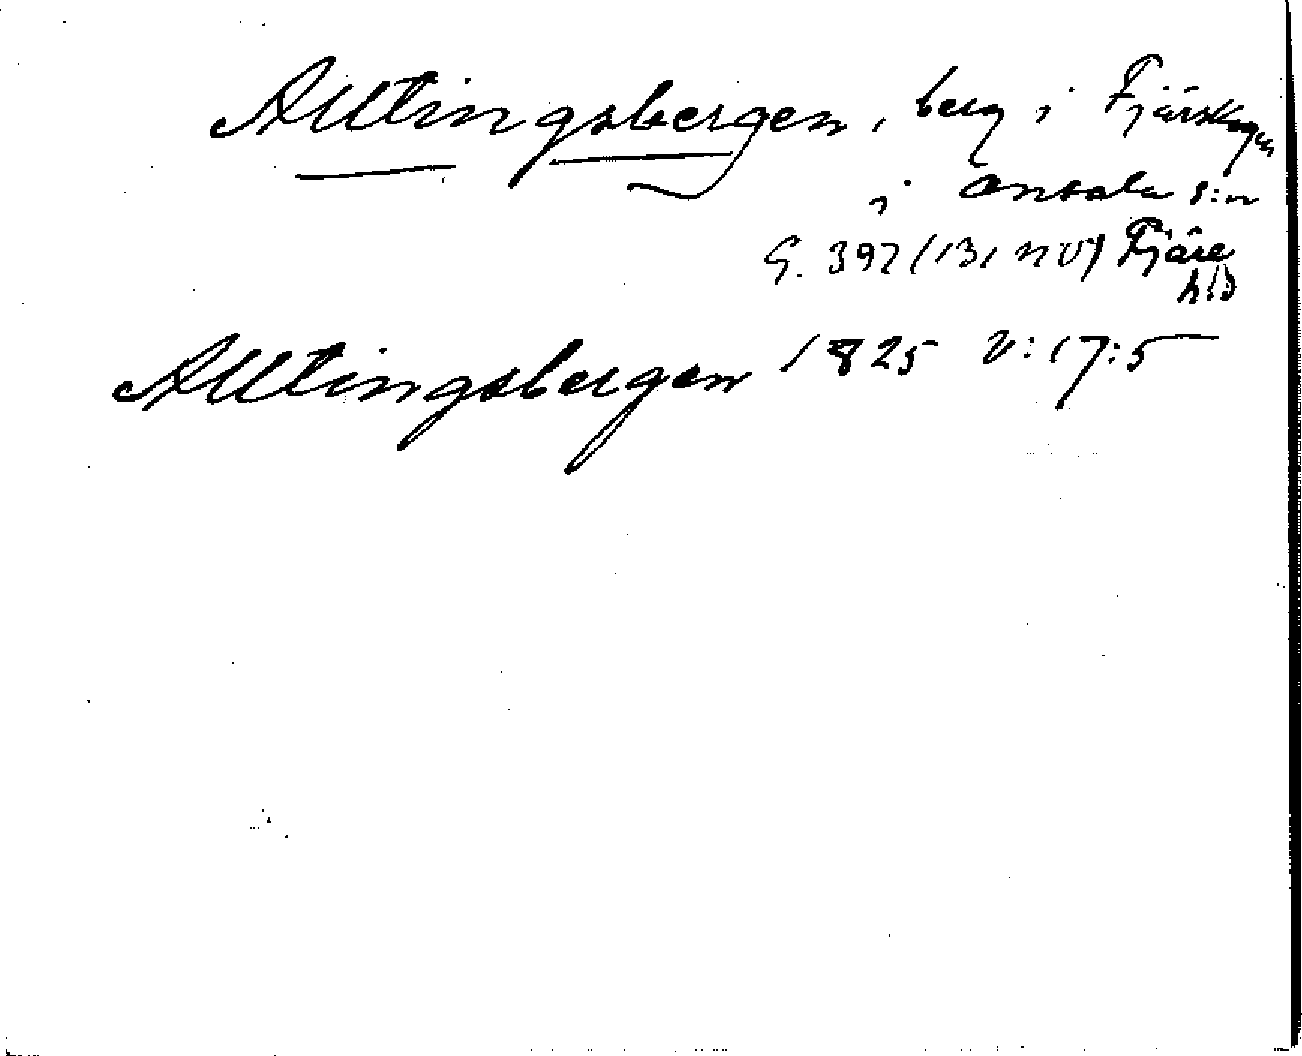 Alltingsbergen, berg i Fjärskogen
i Onsala s:n
G. 397 (131 NV) Fjäre
hd
Alltingsbergen 1825 v:17:5